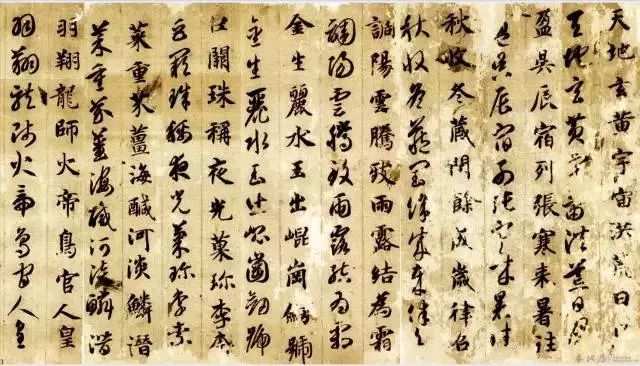 天地玄黄宇宙洪荒日月
天地玄黄宇宙洪荒日月
盈昃辰宿列張寒来暑往
盈昃辰宿列張寒来暑往
秋收冬藏閏餘成歲律呂
秋收冬藏閏餘成歲律呂
調陽雲騰致雨露結為霜
調陽雲騰致雨露結為霜
金生麗水玉出崐崗劍號
金生麗水玉出崐崗劍號
巨闕珠稱夜光菓珍李柰
巨闕珠稱夜光菓珍李柰
菜重芥薑海醎河淡鱗潛
菜重芥薑海醎河淡鱗潛
羽翔龍師火帝鳥官人皇
羽翔龍師火帝鳥官人皇